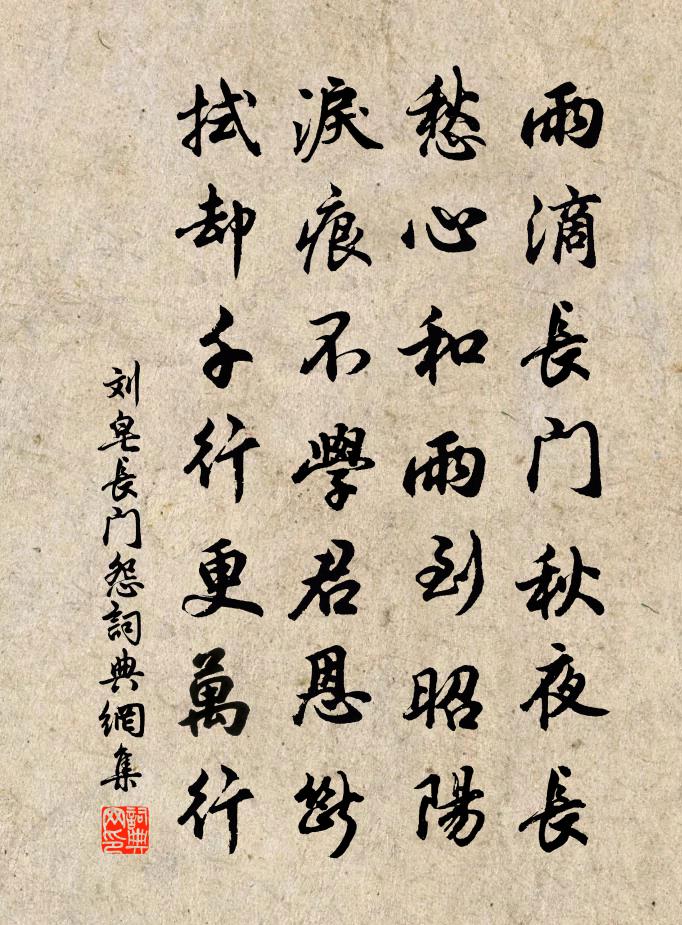 雨滴長門秋夜長
愁心和雨到昭陽
淚痕不學君恩斷
拭却千行更萬行
刘皂長門怨詞典網集
詞典网印